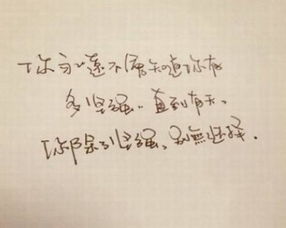 你永遠不會知道你有
多坚强，直到有天、
你除了坚强、别無选择.